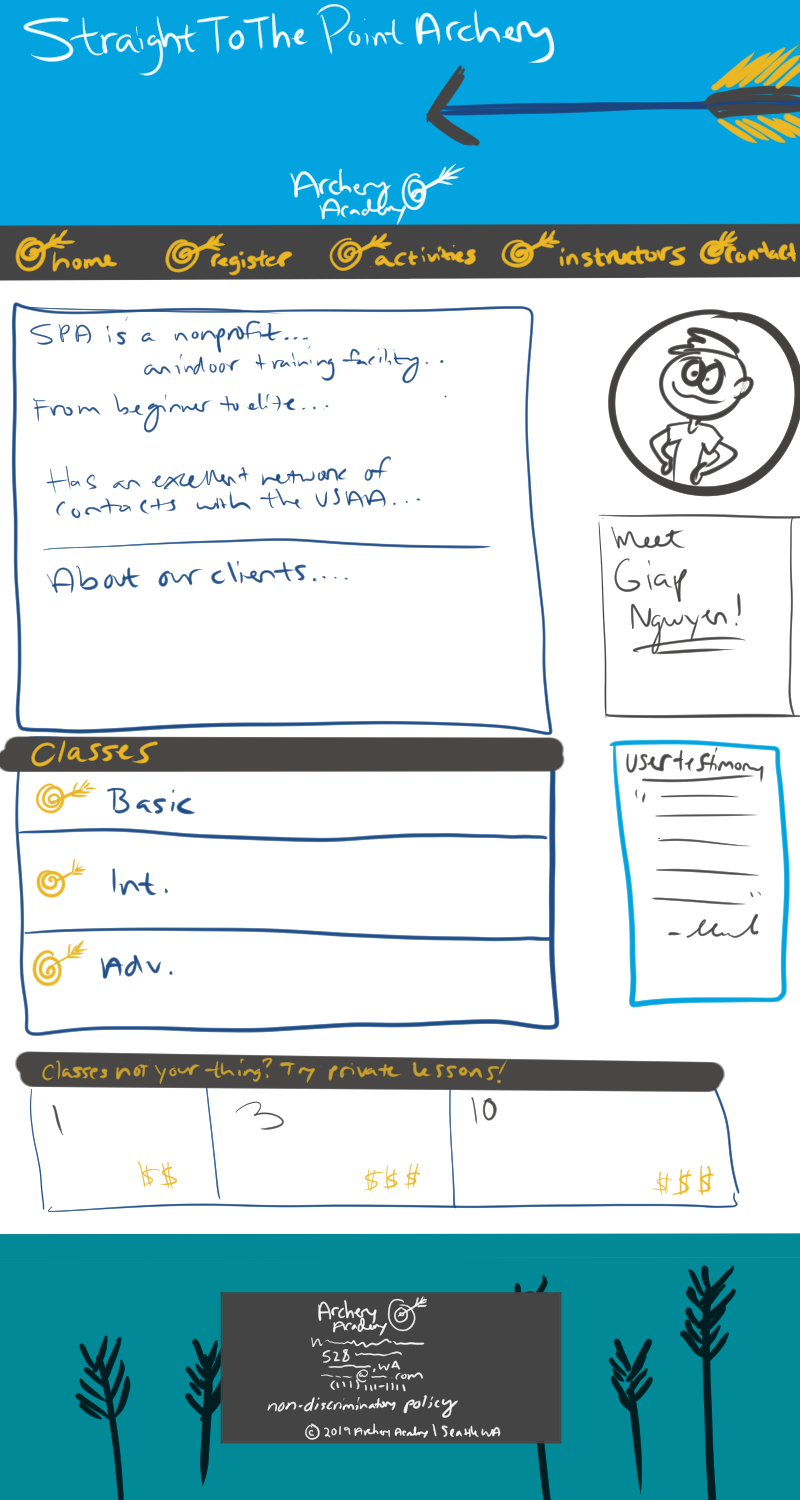 StraightToThe Point Archery
Archery
Academy
home register activities instructors contact
SPA is a nonprofit...
an indoor training facility..
From beginner to elite...
Has an excellent network of
contacts with the USAA...
About our clients....
Meet
Giap
Nguyen!
Classes
Basic
Int.
Adv.
User testimony
"
"
Classes not your thing? Try private lessons!
1 3 10
$$ $$$ $$$
Archery
Academy
528
, WA
@ .com
(111) 111-1111
non-discriminatory policy
© 2019 Archery Academy | Seattle WA